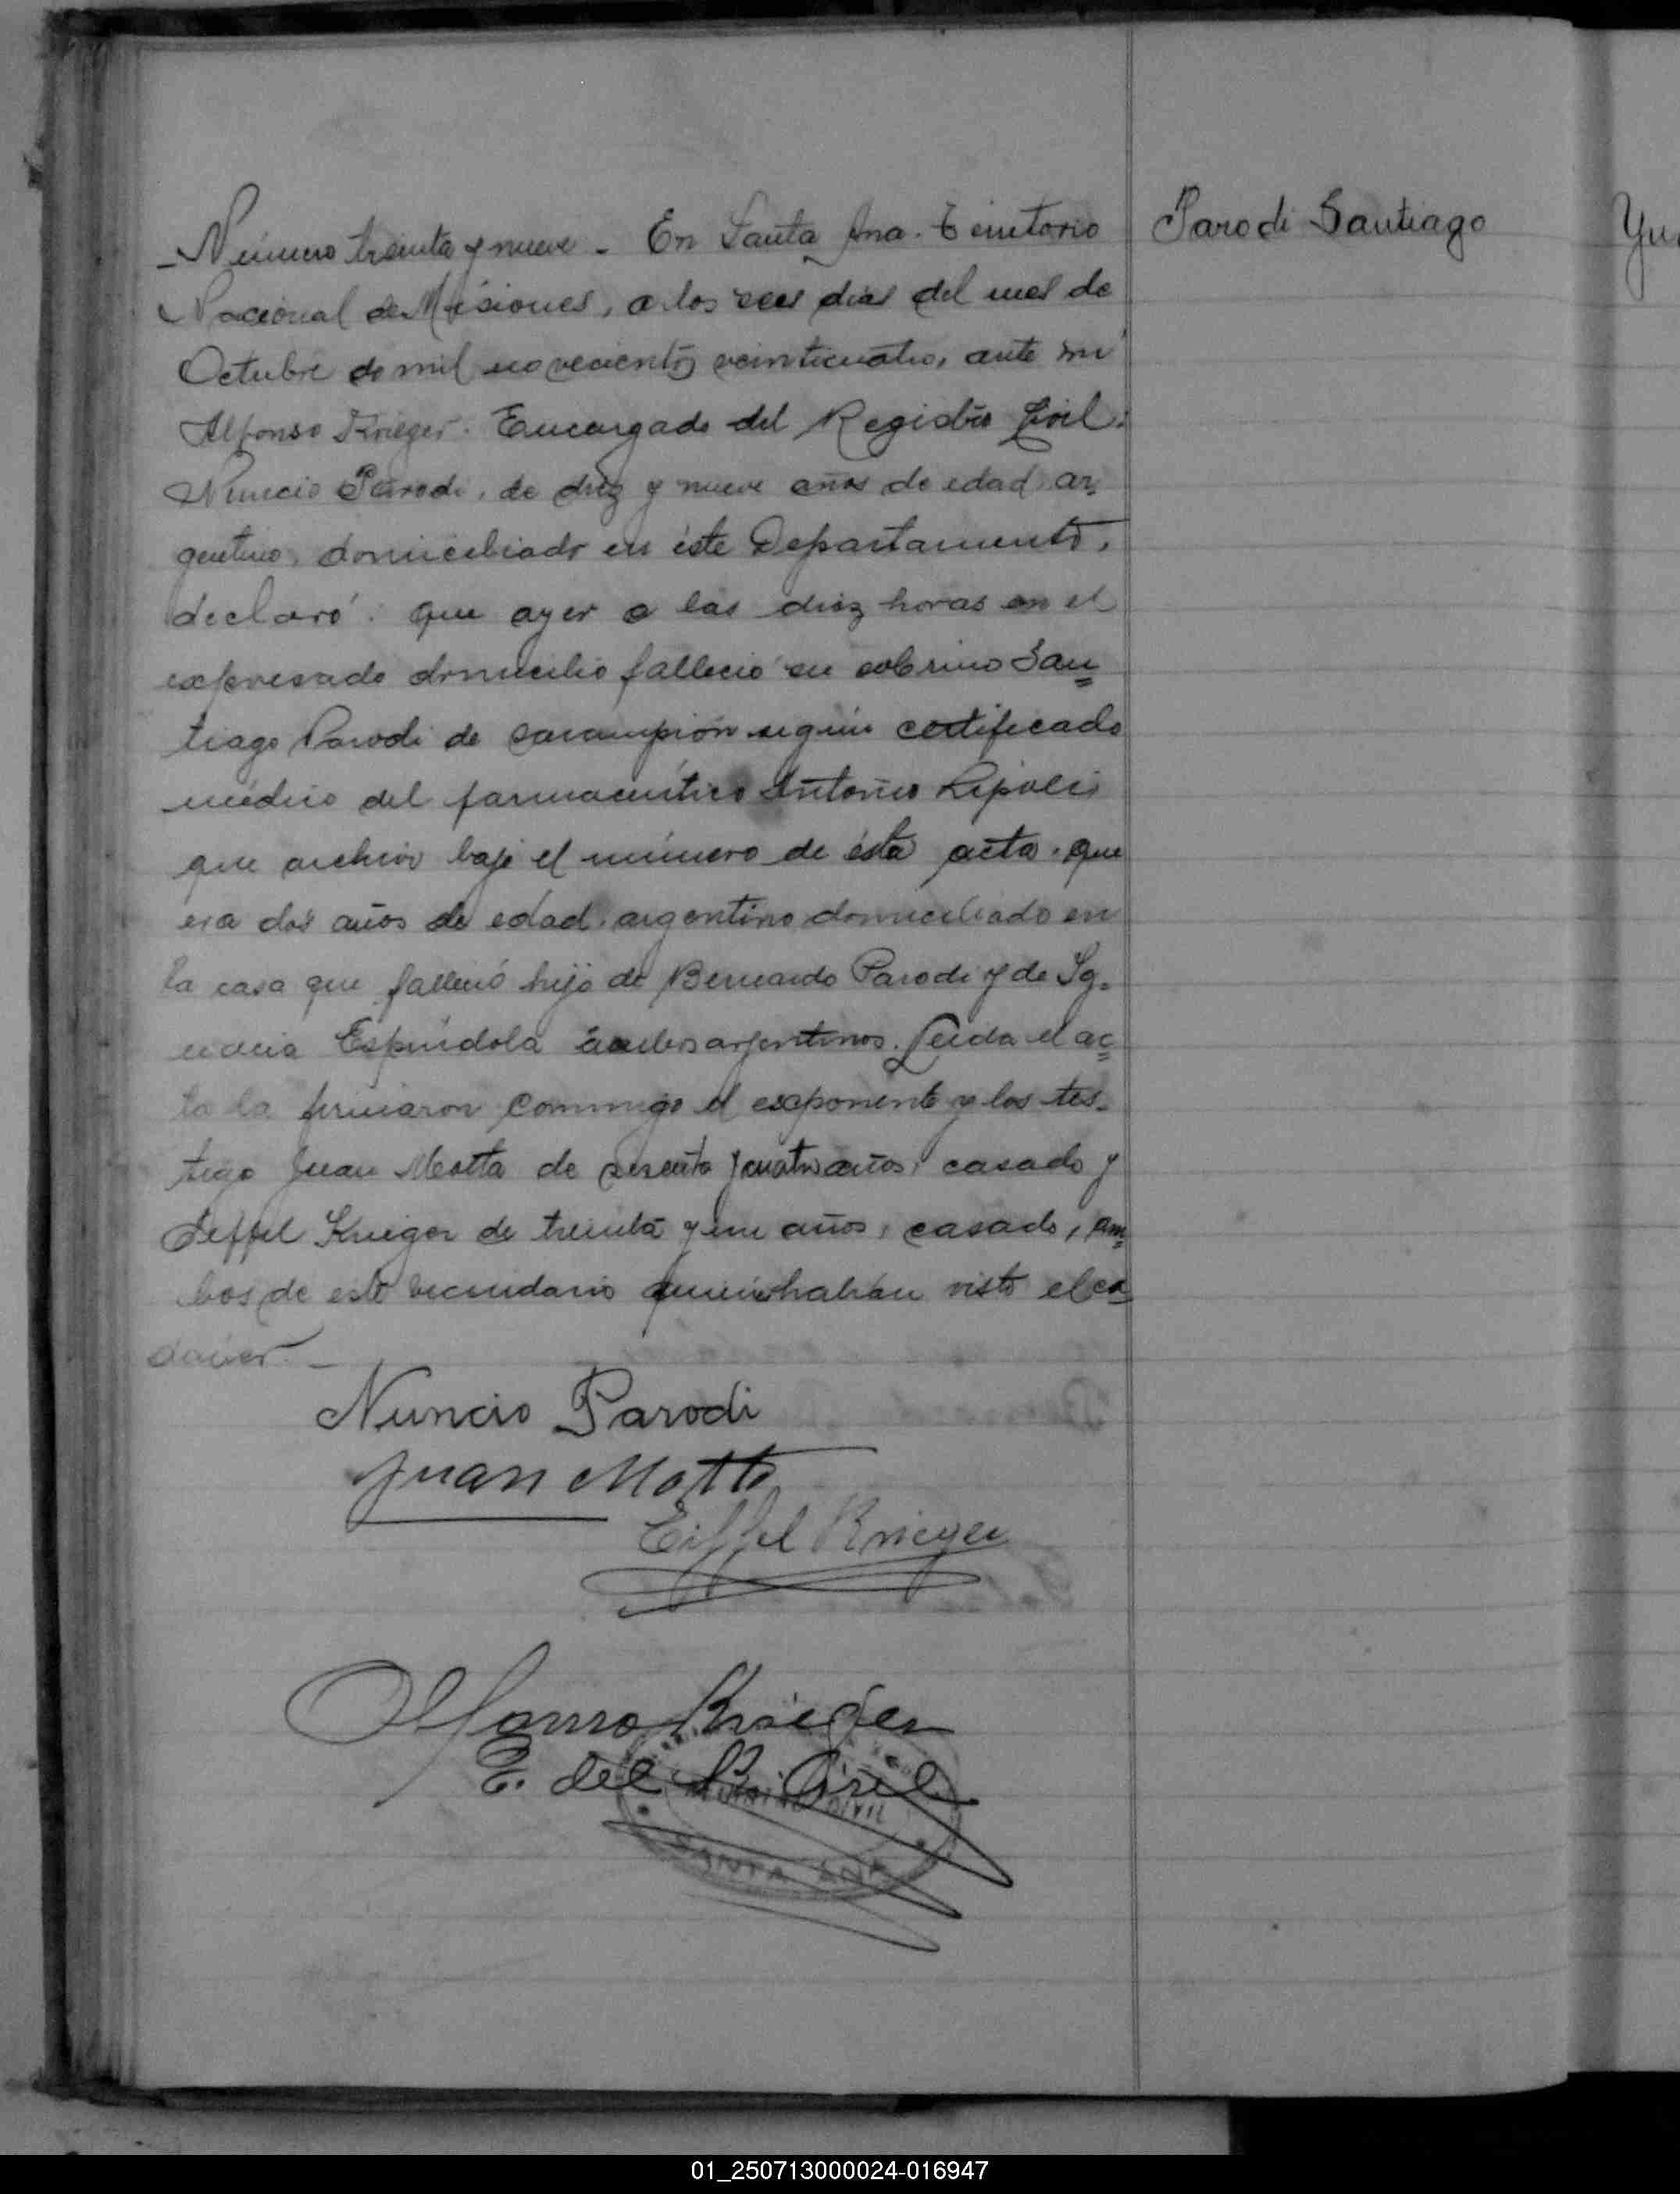 Parodi Santiago
- Número treinta y nueve - En Santa Ana. Territorio
Nacional de Misiones, a los seis dias del mes de
Octubre de mil novecientos veinticuatro, ante mi
Alfonso Krieger. Encargado del Registro Civil:
Nuncio Parodi, de diez y nueve años de edad, ar-
gentino, domiciliado en éste Departamento,
declaró: que ayer a las diez horas en el
expresado domicilio falleció su sobrino San=
tiago Parodi de sarampión según certificado
médico del farmacéutico Antonio
que archivo bajo el número de ésta acta. que
era dos años de edad, argentino domiciliado en
la casa que falleció hijo de Bernardo Parodi y de Ig-
nacia Espíndola ambos argentinos. Leida el ac=
ta la firmaron conmigo el exponente y los tes-
tigo Juan Motta de y cuatro años, casado y
Eeffel Krieger de treinta y un años, casado, am=
bos de este vecindario quienes habían visto el ca=
dáver. -
Nuncio Parodi
Juan Motta
Eiffel Krieger
Alfonso Krieger
E. del R. Civil
REGISTRO CIVIL
SANTA ANA
01_250713000024-016947